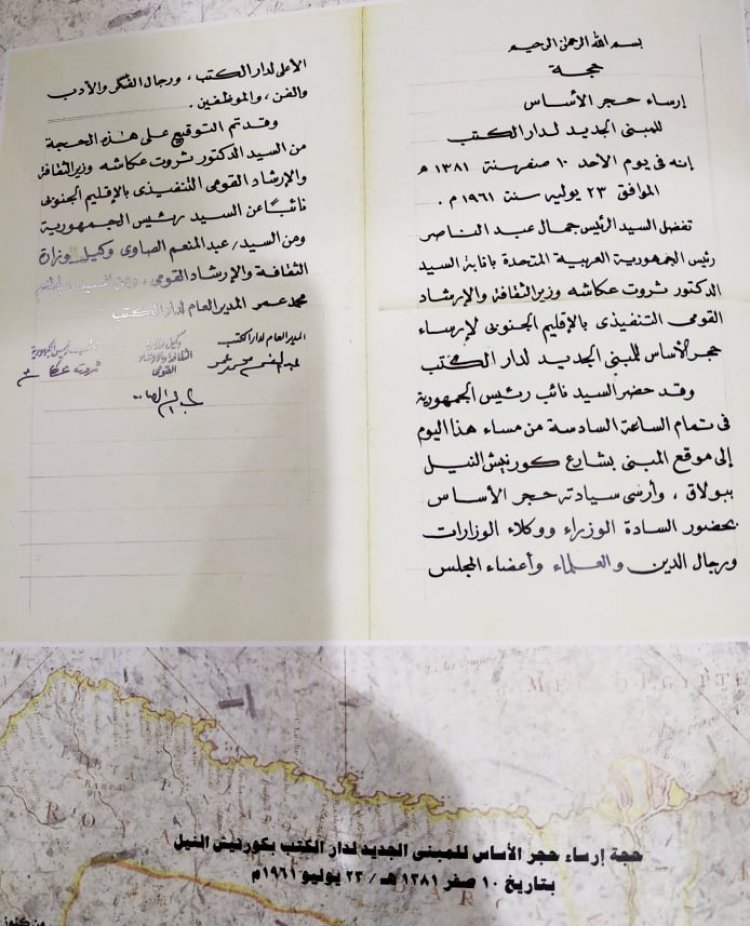 بسم الله الرحمن الرحيم
حجة
إرساء حجر الأساس
للمبنى الجديد لدار الكتب
إنه فى يوم الأحد ١٠ صفر سنة ١٣٨١ هـ
الموافق ٢٣ يوليه سنة ١٩٦١ م .
تفضل السيد الرئيس جمال عبد الناصر
رئيس الجمهورية العربية المتحدة بإنابة السيد
الدكتور ثروت عكاشه وزير الثقافة والإرشاد
القومى التنفيذى بالإقليم الجنوبى لإرساء
حجر الأساس للمبنى الجديد لدار الكتب
وقد حضر السيد نائب رئيس الجمهورية
فى تمام الساعة السادسة من مساء هذا اليوم
إلى موقع المبنى بشارع كورنيش النيل
ببولاق ، وأرسى سيادته حجر الأساس
بحضور السادة الوزراء ووكلاء الوزارات
ورجال الدين والعلماء وأعضاء المجلس
الأعلى لدار الكتب ، ورجال الفكر والأدب
والفن ، والموظفين .
وقد تم التوقيع على هذه الحجة
من السيد الدكتور ثروت عكاشه وزير الثقافة
والإرشاد القومى التنفيذى بالإقليم الجنوبى
نائبًا عن السيد رئيس الجمهورية
ومن السيد/ عبد المنعم الصاوى وكيل وزارة
الثقافة والإرشاد القومى ، ومن السيد
محمد عمر المدير العام لدار الكتب
المدير العام لدار الكتب
عبد المنعم محمد عمر
وكيل وزارة
الثقافة والإرشاد
القومى
رئيس الجمهورية
ثروت عكاشه
MER
EGYPTE
حجة إرساء حجر الأساس للمبنى الجديد لدار الكتب بكورنيش النيل
بتاريخ ١٠ صفر ١٣٨١ هـ / ٢٣ يوليو ١٩٦١م
من كنوز